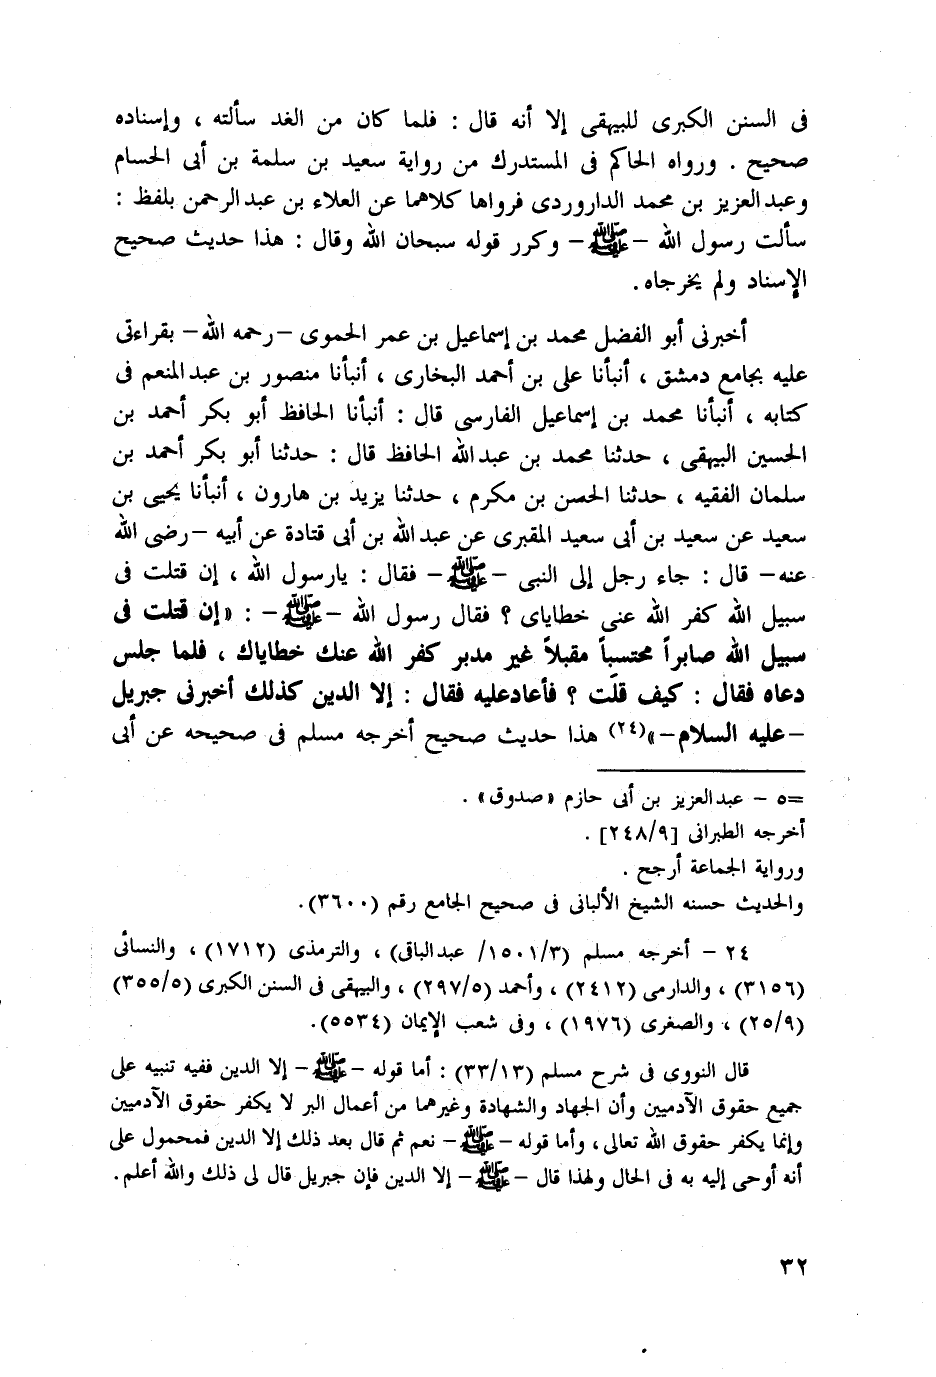 فى السنن الكبرى للبيهقى إلا أنه قال : فلما كان من الغد سألته ، وإسناده
صحيح . ورواه الحاكم فى المستدرك من رواية سعيد بن سلمة بن أبى الحسام
وعبدالعزيز بن محمد الداروردى فرواها كلاهما عن العلاء بن عبدالرحمن بلفظ :
سألت رسول الله – ﷺ – وكرر قوله سبحان الله وقال : هذا حديث صحيح
الإسناد ولم يخرجاه.
أخبرنى أبو الفضل محمد بن إسماعيل بن عمر الحموى –رحمه الله– بقراءتى
عليه بجامع دمشق ، أنبأنا على بن أحمد البخارى ، أنبأنا منصور بن عبدالمنعم فى
كتابه ، أنبأنا محمد بن إسماعيل الفارسى قال : أنبأنا الحافظ أبو بكر أحمد بن
الحسين البيهقى ، حدثنا محمد بن عبدالله الحافظ قال : حدثنا أبو بكر أحمد بن
سلمان الفقيه ، حدثنا الحسن بن مكرم ، حدثنا يزيد بن هارون ، أنبأنا يحيى بن
سعيد عن سعيد بن أبى سعيد المقبرى عن عبدالله بن أبى قتادة عن أبيه –رضى الله
عنه– قال : جاء رجل إلى النبى – ﷺ – فقال : يارسول الله ، إن قتلت فى
سبيل الله كفر الله عنى خطاياى ؟ فقال رسول الله – ﷺ – : «إن قتلت فى
سبيل الله صابراً محتسباً مقبلاً غير مدبر كفر الله عنك خطاياك ، فلما جلس
دعاه فقال : كيف قلَت ؟ فأعادعليه فقال : إلا الدين كذلك أخبرنى جبريل
–عليه السلام–»(٢٤) هذا حديث صحيح أخرجه مسلم فى صحيحه عن أبى
=٥ – عبدالعزيز بن أبى حازم «صدوق» .
أخرجه الطبرانى [٢٤٨/٩] .
ورواية الجماعة أرجح .
والحديث حسنه الشيخ الألبانى فى صحيح الجامع رقم (٣٦٠٠).
٢٤ – أخرجه مسلم (١٥٠١/٣/ عبدالباقى) ، والترمذى (١٧١٢) ، والنسائى
(٣١٥٦) ، والدارمى (٢٤١٢) ، وأحمد (٢٩٧/٥) ، والبيهقى فى السنن الكبرى (٣٥٥/٥)
(٢٥/٩) ، والصغرى (١٩٧٦) ، وفى شعب الإيمان (٥٥٣٤).
قال النووى فى شرح مسلم (٣٣/١٣) : أما قوله – ﷺ – إلا الدين ففيه تنبيه على
جميع حقوق الآدميين وأن الجهاد والشهادة وغيرهما من أعمال البر لا يكفر حقوق الآدميين
وإنما يكفر حقوق الله تعالى، وأما قوله – ﷺ – نعم ثم قال بعد ذلك إلا الدين فمحمول على
أنه أوحى إليه به فى الحال ولهذا قال – ﷺ – إلا الدين فإن جبريل قال لى ذلك والله أعلم.
٣٢